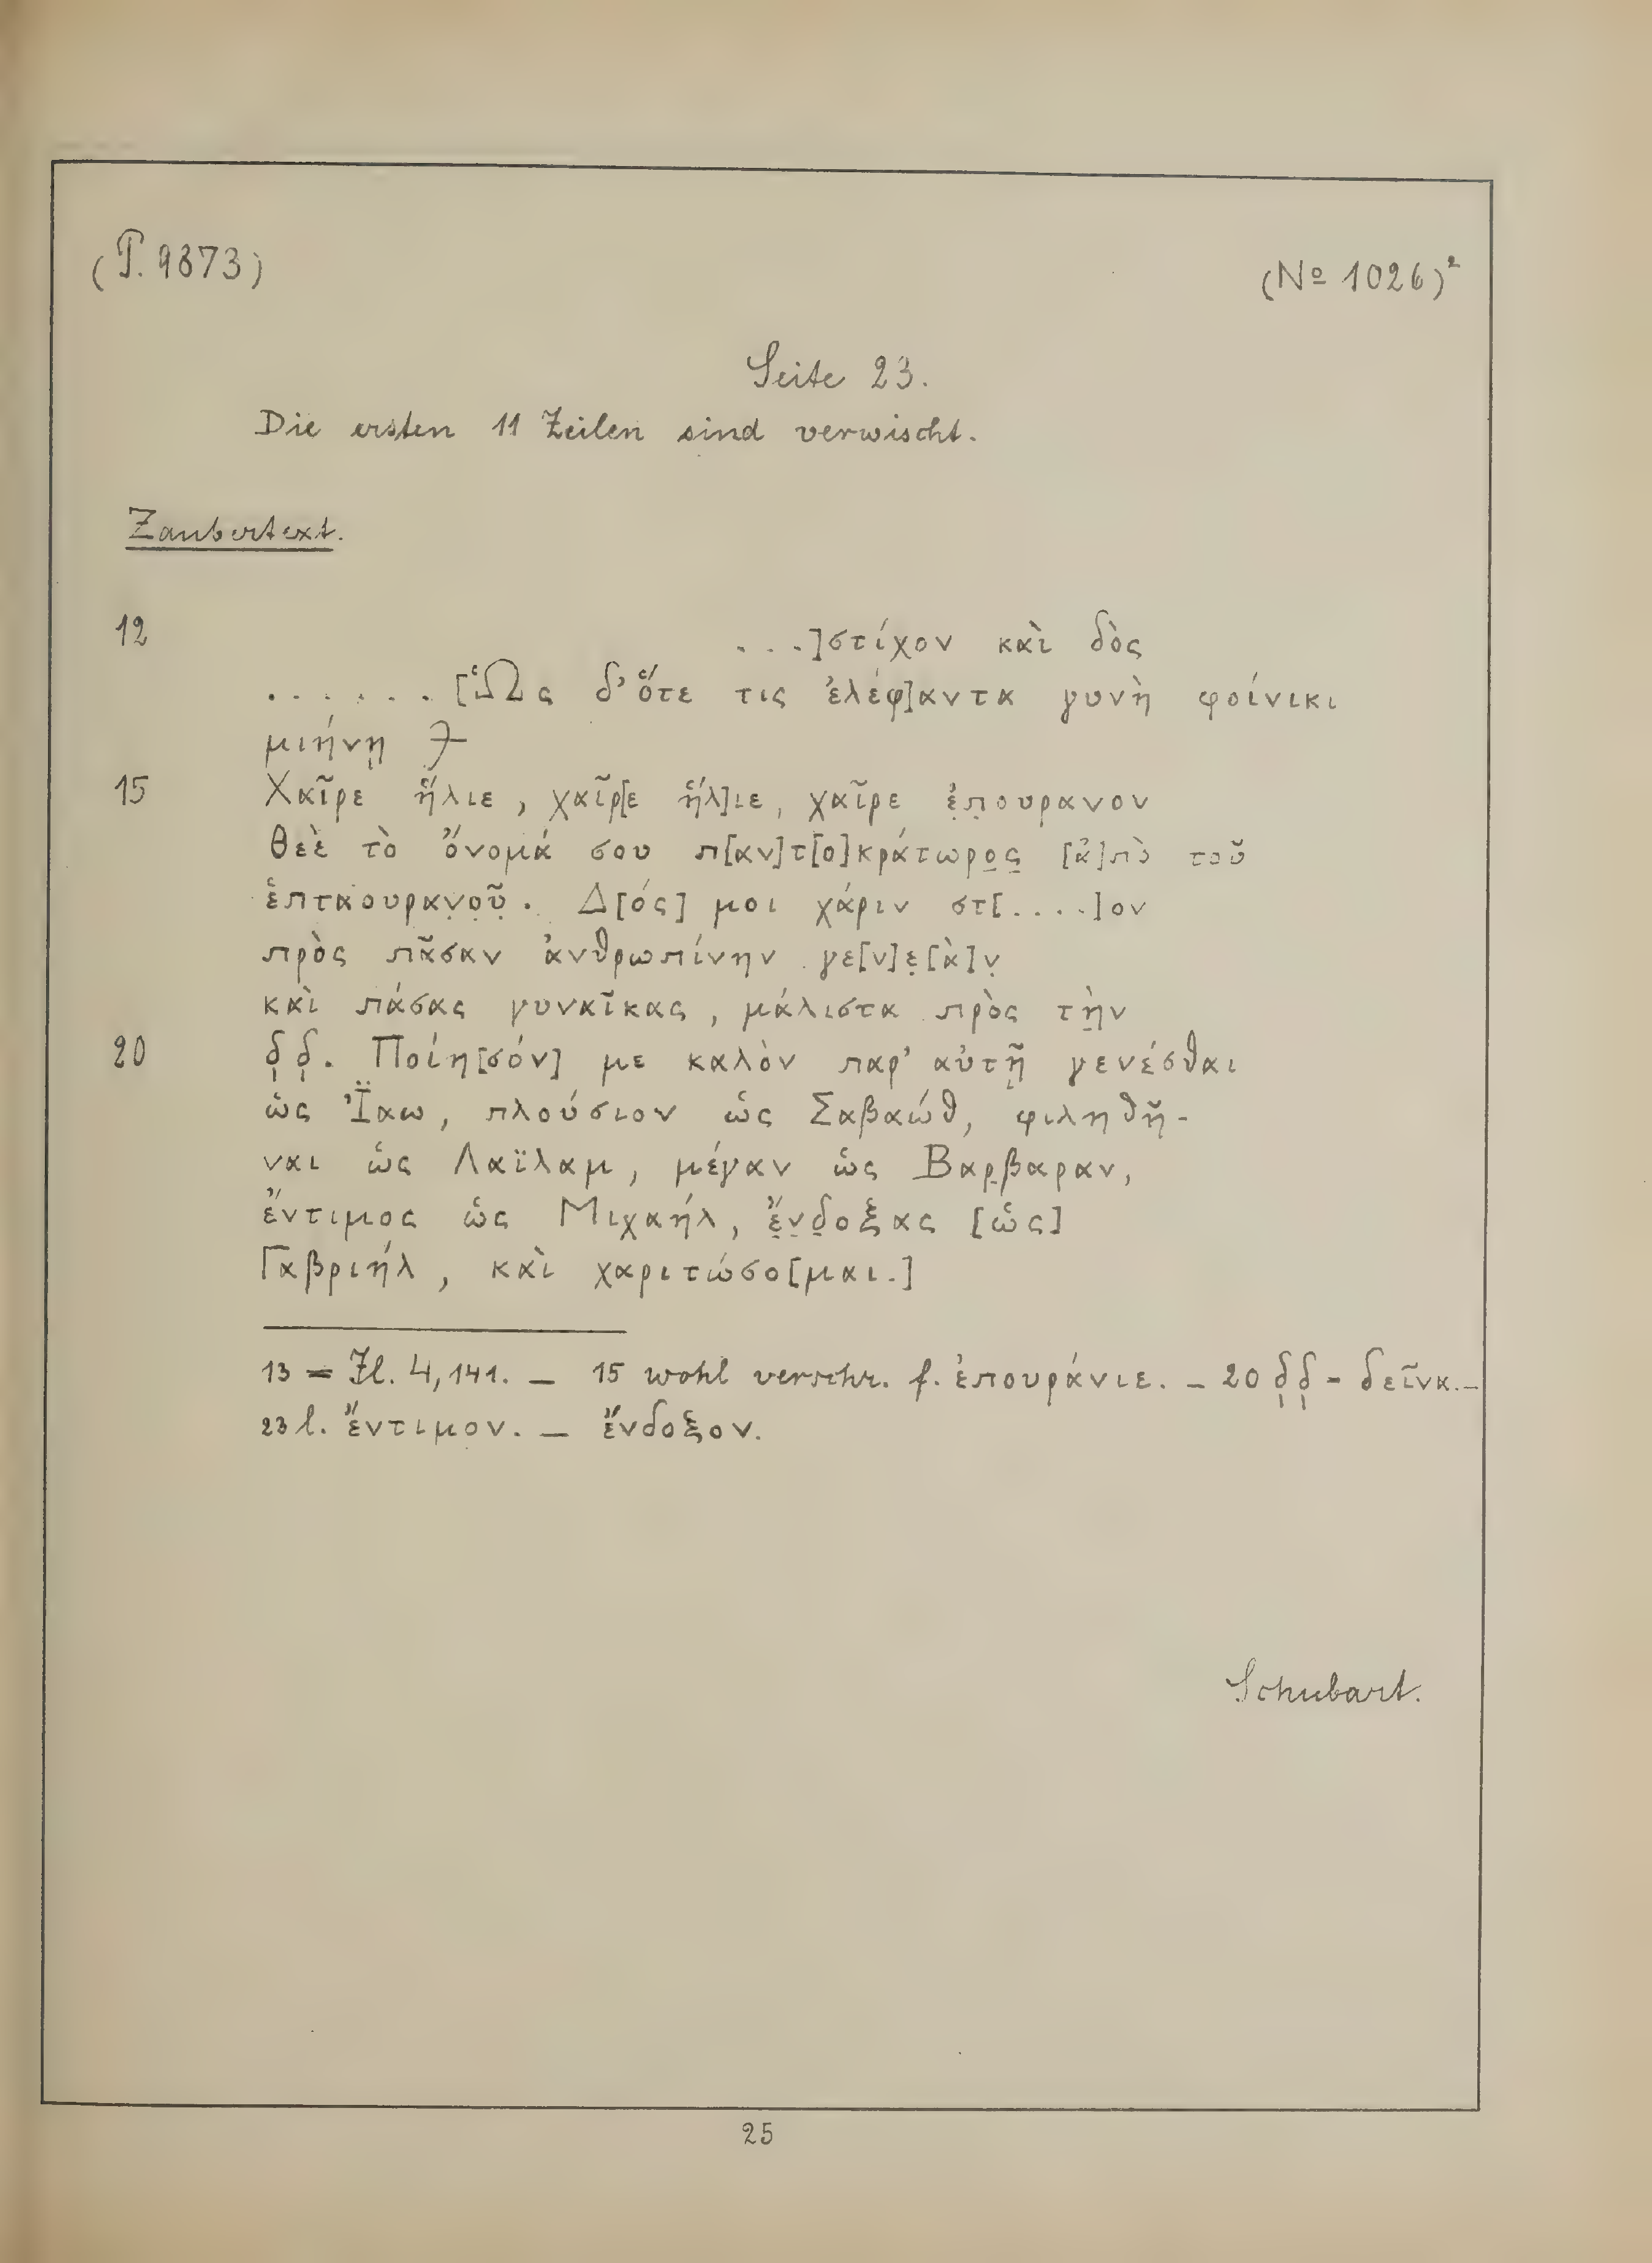 (P. 9873) (No 1026)²
Seite 23.
Die ersten 11 Zeilen sind verwischt.
Zaubertext.
12 . . .]στίχον καὶ δὸς
. . . . . . . [Ὡς δ' ὅτε τις ἐλέφ]αντα γυνὴ φοίνικι
μιήνῃ
15 Χαῖρε ἥλιε, χαῖρ[ε ἥλ]ιε, χαῖρε ἐ̣π̣ουρανον
θεὲ τὸ ὄνομά σου π[αν]τ[ο]κράτωρο̣ς̣ [ἀ]πὸ τοῦ
ἑπταουραν̣ο̣ῦ̣. Δ[ός] μοι χάριν στ[. . . .]ον
πρὸς πᾶσαν ἀνθρωπίνην γε[ν]ε̣[ὰ]ν̣
καὶ πάσας γυναῖκας, μάλιστα πρὸς τὴ̣ν
20 δ δ. Ποίη[σόν] με καλὸν παρ' αὐτῇ γενέσθαι
ὡς Ἰ̈αω, πλούσιον ὡς Σαβαώθ, φιληθῆ-
ναι ὡς Λαϊλαμ, μέγαν ὡς Βαρ̣βαραν,
ἔντιμος ὡς Μιχαήλ, ἔ̣ν̣δ̣οξας [ὡς]
Γαβριήλ, καὶ χαριτώσο[μαι.]
13 = Il. 4,141. — 15 wohl verschr. f. ἐπουράνιε. — 20 δ δ = δεῖνα. —
23 l. ἔντιμον. — ἔνδοξον.
Schubart.
25